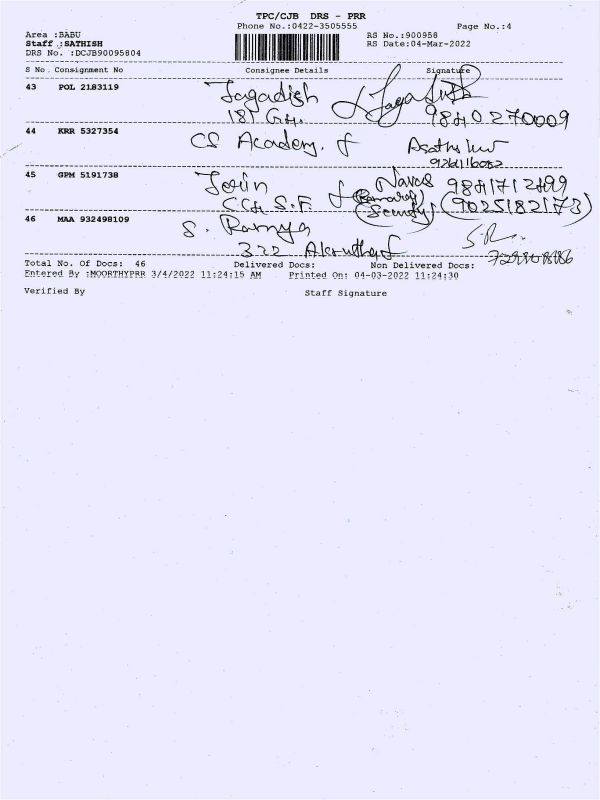 TPC/CJB DRS - PRR
Phone No.:0422-3505555 Page No.:4
Area :BABU RS No.:900958
Staff :SATHISH RS Date:04-Mar-2022
DRS No. :DCJB90095804
S No. Consignment No Consignee Details Signature
43 POL 2183119 Jagadish
181 G.H. 9840270009
44 KRR 5327354 CS Academy.
45 GPM 5191738 Jerin Navas 9841712499
C.C.H S.F (Security) (9025182173)
46 MAA 932498109 S. Ramya S.R.
322
Total No. Of Docs: 46 Delivered Docs: Non Delivered Docs:
Entered By :MOORTHYPRR 3/4/2022 11:24:15 AM Printed On: 04-03-2022 11:24:30
Verified By Staff Signature